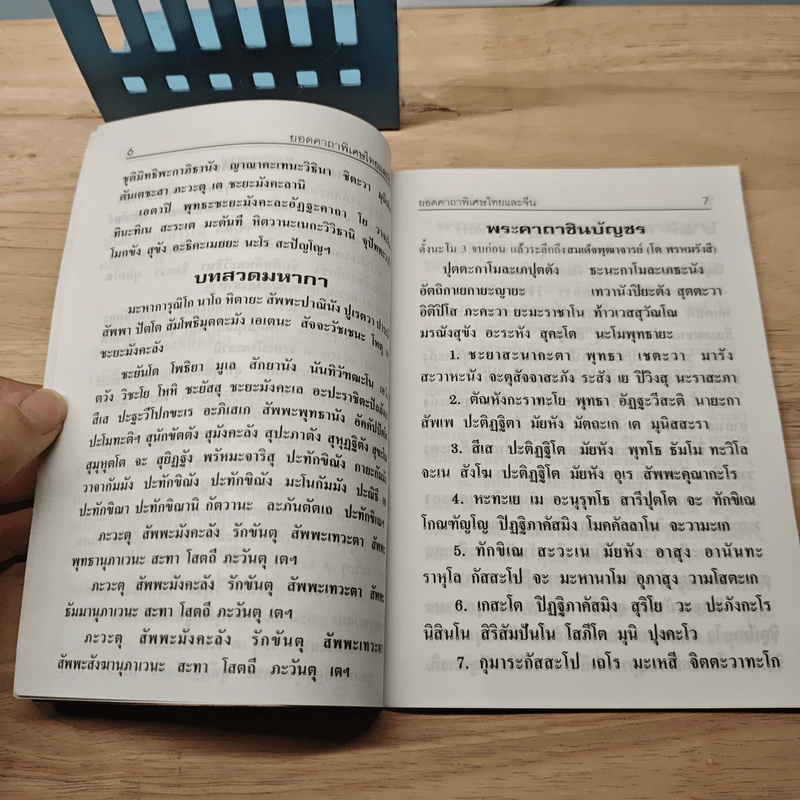 6 ยอดคาถาพิเศษไทยและ
ชุติมิทธิพะกาภิธานัง ญาณาคะเทนะวิธินา ชิตะวา
ตันเตชะสา ภะวะตุ เต ชะยะมังคะลานิ
เอตาปิ พุทธะชะยะมังคะละอัฏฐะคาถา โย
ทินะทิเน สะระเต มะตันที หิตวานะเนกะวิวิธานิ
โมกขัง สุขัง อะธิคะเมยยะ นะโร สะปัญโญฯ
บทสวดมหากา
มะหาการุณิโก นาโถ หิตายะ สัพพะปาณินัง ปูเรตวา
สัพพา ปัตโต สัมโพธิมุตตะมัง เอเตนะ สัจจะวัชเชนะ โหตุ
ชะยะมังคะลัง
ชะยันโต โพธิยา มูเล สักยานัง นันทิวัฑฒะโน
ตวัง วิชะโย โหหิ ชะยัสสุ ชะยะมังคะเล อะปะราชิตะปัลลัง
สีเส ปะฐะวีโปกขะเร อะภิเสเก สัพพะพุทธานัง อัคคัปปัตโต
ปะโมทะติฯ สุนักขัตตัง สุมังคะลัง สุปะภาตัง สุหุฏฐิตัง
สุมุหุตโต จะ สุยิฏฐัง พรัหมะจาริสุ ปะทักขิณัง กายะกัมมัง
วาจากัมมัง ปะทักขิณัง ปะทักขิณัง มะโนกัมมัง ปะณิธี
ปะทักขิณา ปะทักขิณานิ กัตวานะ ละภันตัตเถ ปะทักขิเณฯ
ภะวะตุ สัพพะมังคะลัง รักขันตุ สัพพะเทวะตา สัพพะ
พุทธานุภาเวนะ สะทา โสตถี ภะวันตุ เตฯ
ภะวะตุ สัพพะมังคะลัง รักขันตุ สัพพะเทวะตา สัพพะ
ธัมมานุภาเวนะ สะทา โสตถี ภะวันตุ เตฯ
ภะวะตุ สัพพะมังคะลัง รักขันตุ สัพพะเทวะตา
สัพพะสังฆานุภาเวนะ สะทา โสตถี ภะวันตุ เตฯ
ยอดคาถาพิเศษไทยและจีน 7
พระคาถาชินบัญชร
ตั้งนะโม 3 จบก่อน แล้วระลึกถึงสมเด็จพุฒาจารย์ (โต พรหมรังสี)
ปุตตะกาโมละเภปุตตัง ธะนะกาโมละเภธะนัง
อัตถิกาเยกายะญายะ เทวานังปิยะตัง สุตตะวา
อิติปิโส ภะคะวา ยะมะราชาโน ท้าวเวสสุวัณโณ
มรณังสุขัง อะระหัง สุคะโต นะโมพุทธายะ
1. ชะยาสะนากะตา พุทธา เชตะวา มารัง
สะวาหะนัง จะตุสัจจาสะภัง ระสัง เย ปิวิงสุ นะราสะภา
2. ตัณหังกะราทะโย พุทธา อัฏฐะวีสะติ นายะกา
สัพเพ ปะติฏฐิตา มัยหัง มัตถะเก เต มุนิสสะรา
3. สีเส ปะติฏฐิโต มัยหัง พุทโธ ธัมโม ทะวิโล
จะเน สังโฆ ปะติฏฐิโต มัยหัง อุเร สัพพะคุณากะโร
4. หะทะเย เม อะนุรุทโธ สารีปุตโต จะ ทักขิเณ
โกณฑัญโญ ปิฏฐิภาคัสมิง โมคคัลลาโน จะวามะเก
5. ทักขิเณ สะวะเน มัยหัง อาสุง อานันทะ
ราหุโล กัสสะโป จะ มะหานาโม อุภาสุง วามโสตะเก
6. เกสะโต ปิฏฐิภาคัสมิง สุริโย วะ ปะภังกะโร
นิสินโน สิริสัมปันโน โสภีโต มุนิ ปุงคะโว
7. กุมาระกัสสะโป เถโร มะเหสี จิตตะวาทะโก